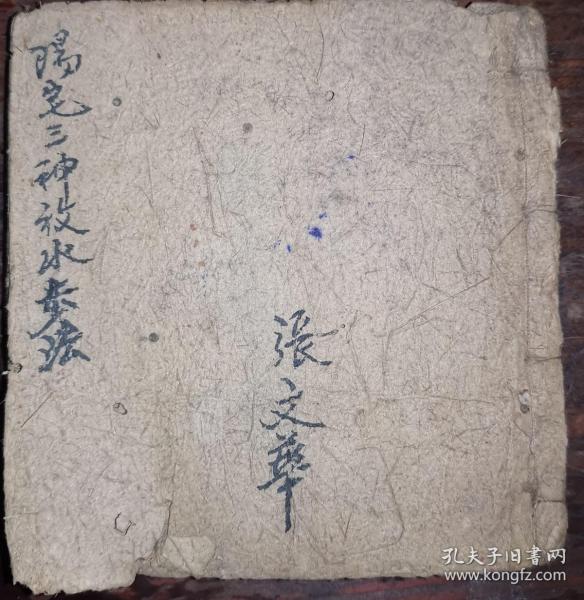 陽宅三种放水步法
張文華
孔夫子旧书网
www.kongfz.com